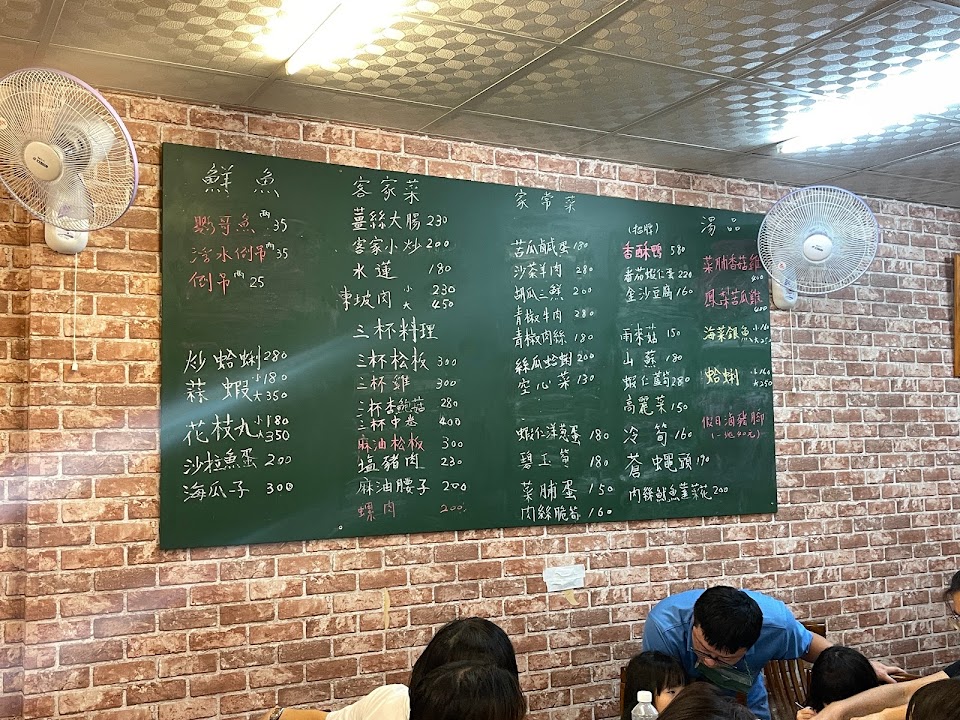 鮮魚
戇哥魚 兩35
活水倒吊 兩35
倒吊 兩25
炒蛤蜊 280
蒜蝦 小180 大350
花枝丸 小180 大350
沙拉魚蛋 200
海瓜子 300
客家菜
薑絲大腸 230
客家小炒 200
水蓮 180
東坡肉 小 230
大 450
三杯料理
三杯松板 300
三杯雞 300
三杯杏鮑菇 280
三杯中卷 400
麻油松板 300
塩豬肉 230
麻油腰子 200
螺肉 200
家常菜
苦瓜鹹蛋 180
沙茶羊肉 280
胡瓜三鮮 200
青椒牛肉 280
青椒肉絲 180
絲瓜蛤蜊 200
空心菜 130
蝦仁洋蔥蛋 180
碧玉筍 180
菜脯蛋 150
肉絲脆筍 160
(招牌)
香酥鴨 580
番茄蝦仁蛋 220
金沙豆腐 160
雨來菇 150
山蘇 180
蝦仁蘆筍 280
高麗菜 150
冷筍 160
蒼蠅頭 190
肉絲魷魚韮菜花 200
湯品
菜脯香菇雞
400
鳳梨苦瓜雞
400
海菜銀魚 小160
大250
蛤蜊 小160
大250
假日滷豬腳
(一塊40元)